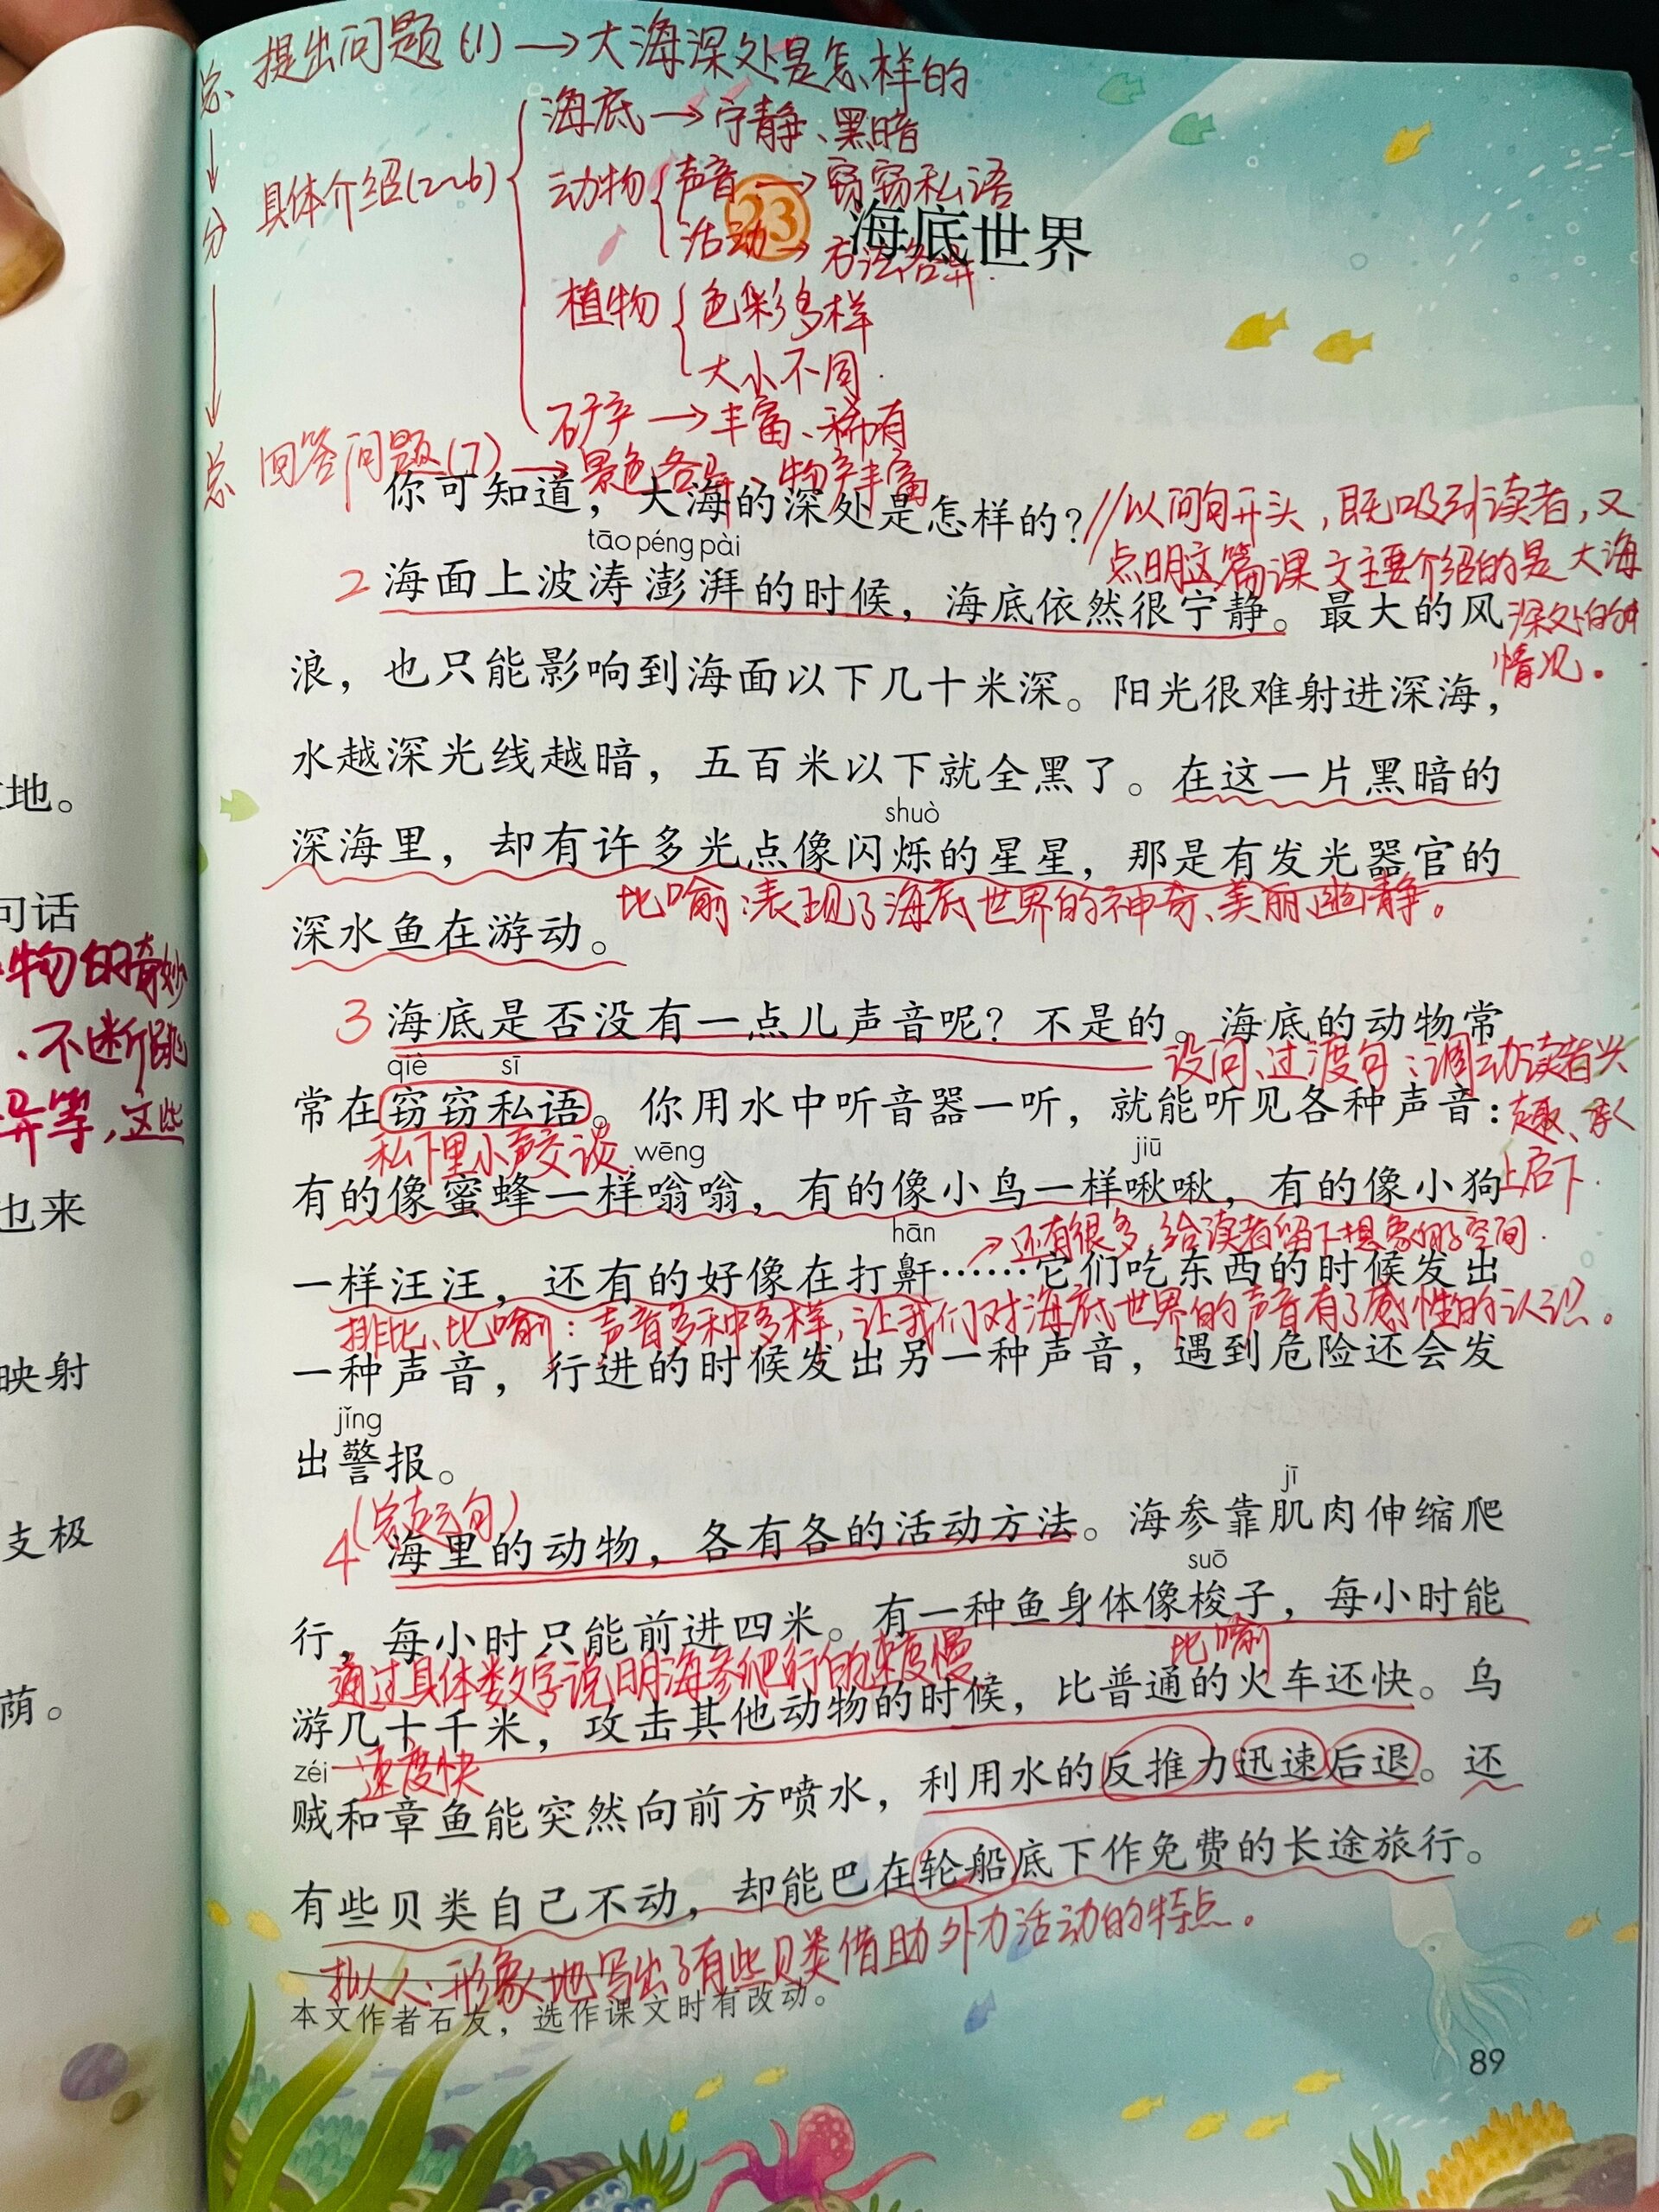 总 提出问题(1)→大海深处是怎样的
海底→宁静、黑暗
分 具体介绍(2~6)
动物
声音→窃窃私语
活动→方法各异.
23 海底世界
植物
色彩多样
大小不同.
矿产→丰富、稀有
总 回答问题(7)→景色各异、物产丰富
你可知道，大海的深处是怎样的？
//以问句开头，既吸引读者，又
点明这篇课文主要介绍的是大海
深处的
情况。
tāo péng pài
2 海面上波涛澎湃的时候，海底依然很宁静。最大的风
浪，也只能影响到海面以下几十米深。阳光很难射进深海，
水越深光线越暗，五百米以下就全黑了。在这一片黑暗的
shuò
深海里，却有许多光点像闪烁的星星，那是有发光器官的
深水鱼在游动。
比喻：表现了海底世界的神奇、美丽、幽静。
3 海底是否没有一点儿声音呢？不是的。海底的动物常
设问、过渡句：调动读者兴
趣、承
上启下.
qiè sī
常在窃窃私语。你用水中听音器一听，就能听见各种声音：
私下里小声交谈.
wēng jiū
有的像蜜蜂一样嗡嗡，有的像小鸟一样啾啾，有的像小狗
hān
→还有很多，给读者留下想象的空间.
一样汪汪，还有的好像在打鼾……它们吃东西的时候发出
排比、比喻：声音多种多样，让我们对海底世界的声音有了感性的认识。
一种声音，行进的时候发出另一种声音，遇到危险还会发
jǐng
出警报。
(总起句)
jī
4 海里的动物，各有各的活动方法。海参靠肌肉伸缩爬
suō
行，每小时只能前进四米。有一种鱼身体像梭子，每小时能
通过具体数字说明海参爬行的速度慢
比喻
游几十千米，攻击其他动物的时候，比普通的火车还快。乌
zéi
速度快
贼和章鱼能突然向前方喷水，利用水的反推力迅速后退。还
有些贝类自己不动，却能巴在轮船底下作免费的长途旅行。
拟人：形象地写出了有些贝类借助外力活动的特点。
本文作者石友，选作课文时有改动。
89
地。
句话
物的奇妙
、不断跳
异等，这些
也来
映射
支极
荫。